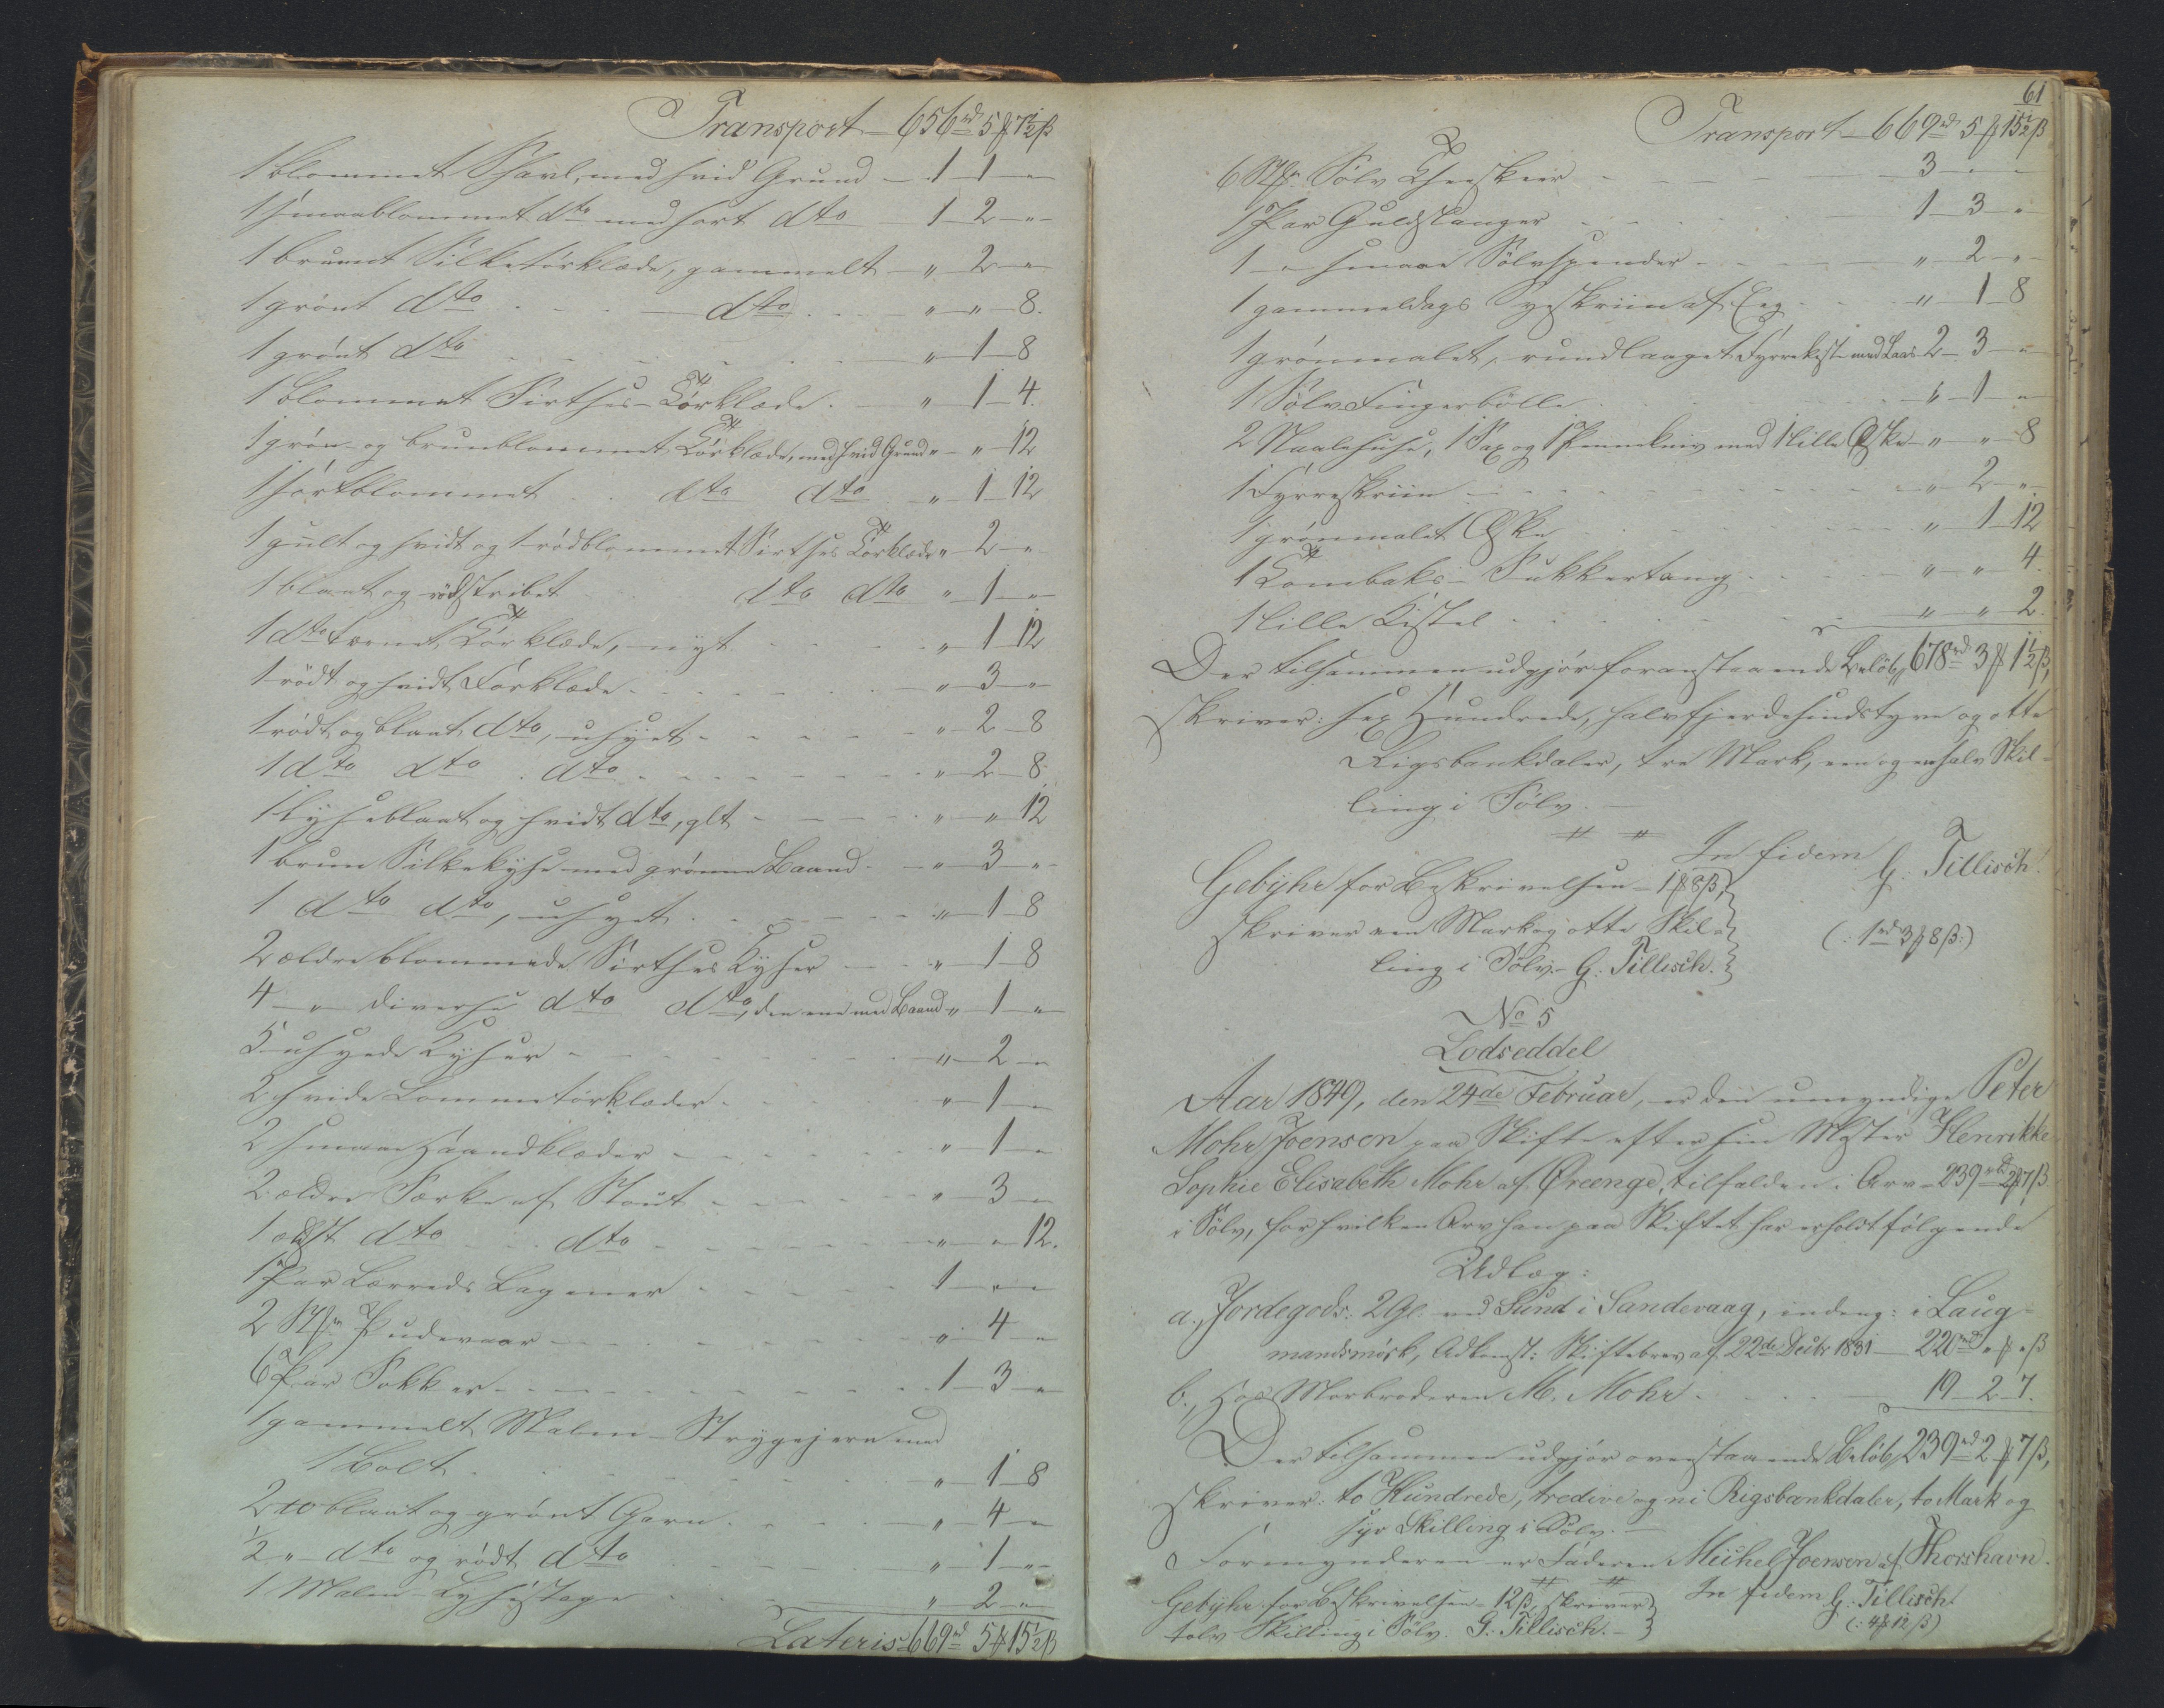 Transport — 656 rd 5 ℳ 7½ ß
1 blommet Shavl, med hvid Grund — 1 — 1 — „
1 smaablommet dto med sort dto — 1 — 2 — „
1 bruunt Silketørklæde, gammelt — „ — 2 — „
1 grönt dto dto — „ — „ — 8.
1 grönt dto — „ — 1 — 8
1 blommet Sirthses-Törklæde — „ — 1 — 4.
1 grön- og brunblommet Törklæde, med hvid Grund „ — „ — 12
1 sortblommet dto dto — „ — 1 — 12
1 gult og hvidt og 1 rödblommet Sirthses Törklæde „ — 2 — „
1 blaat og rödstribet dto dto „ — 1 — „
1 dto tærnet Törklæde, nyt — „ — 1 — 12
1 rödt og hvidt Forklæde — „ — 3 — „
1 rödt og blaat dto, usyet — „ — 2 — 8
1 dto dto dto — „ — 2 — 8.
1 lyseblaat og hvidt dto, glt — „ — „ — 12
1 brun Silkekyse med grønne Baand — „ — 3 — „
1 dto dto, usyet — „ — 1 — 8
2 ældre blommede Sirthses Kyser — „ — 1 — 8
4 — „ — diverse dto dto, den ene med Baand „ — 1 — „
5 usyede Kyser — „ — 2 — „
2 hvide Lommetörklæder — „ — 1 — „
2 smaae Haandklæder — „ — 1 — „
2 ældre Særke af Stout — „ — 3 — „
1 ældst dto dto — „ — „ — 12.
1 Par Lærreds Lagener — 1 — „ — „
2 Stkr Pudevaar — „ — 4 — „
6 Par Sokker — 1 — 3 — „
1 gammelt Malm-Strygejern med
1 Bolt — „ — 1 — 8
2 blaat og grönt Garn — „ — 4 — „
½ „ dto og rödt dto — „ — 1 — „
1 Malm-Lysestage — „ — 2 — „
Lateris 669 rd 5 ℳ 15½ ß
61
Transport — 669 rd 5 ℳ 15½ ß
6 Stkr Sölv Theeskeer — 3 — „ — „
1 Par Guldstanger — 1 — 3 — „
1 — „ smaae Sölvspender — „ — 2 — „
1 gammeldags Syeskriin af Eeg — „ — 1 — 8
1 grönmalet, rundlaaget Fyrrekiste med Laas 2 — 3 — „
1 Sölv Fingerbölle — „ — 1 — „
2 Naalehuse, 1 Sax og 1 Pennekniv med 1 lille Æske — „ — „ — 8
1 Fyrreskriin — „ — 2 — „
1 grönmalet Æske — „ — 1 — 12
1 Tombaks-Sukkertang — „ — „ — 4.
1 lille Kistel — „ — „ — 2.
Der tilsammen udgjör foranstaaende Belöb, 678 rd 3 ℳ 1½ ß,
skriver: sex Hundrede, halvfjerdesindstyve og otte
Rigsbankdaler, tre Mark, een og en halv Skil-
ling i Sölv. —
In fidem
G. Tillisch.
Gebyhr for Beskrivelsen — 1 ℳ 8 ß,
skriver een Mark og otte Skil-
ling i Sölv. G. Tillisch.
(: 1 rd 3 ℳ 8 ß :)
No 5
Lodseddel
Aar 1849, den 24de Februar, er den umyndige Peter
Mohr Joensen paa Skifte efter sin Moster Henrikke
Sophie Elisabeth Mohr af Øreenge, tilfalden i Arv — 239 rd 2 ℳ 7 ß
i Sölv, for hvilken Arv han paa Skiftet har erholdt fölgende
Udlæg:
a., Jordegods: 2 Gl. ved Sund i Sandevaag, indeng: i Laug-
mandsmörk, Adkomst: Skiftebrev af 22de Decbr 1831 — 220 rd „ ℳ „ ß
b., Hos Morbroderen M. Mohr — 19 — 2 — 7.
Der tilsammen udgjör ovenstaaende Belöb, 239 rd 2 ℳ 7 ß,
skriver: to Hundrede, tredive og ni Rigsbankdaler, to Mark og
syv Skilling i Sölv. —
Formynderen er Faderen Michel Joensen af Thorshavn.
Gebyhr for Beskrivelsen — 12 ß, skriver
tolv Skilling i Sölv. G. Tillisch. —
In fidem G. Tillisch
(: 4 ℳ 12 ß)